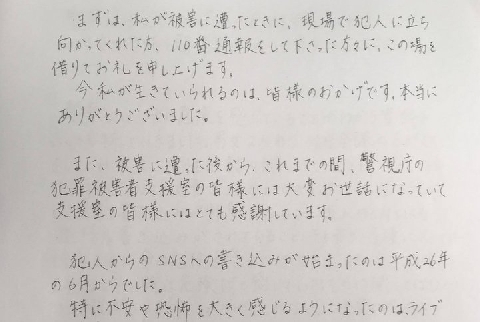 まずは、私が被害に遭ったときに、現場で犯人に立ち
向かってくれた方、110番通報をして下さった方々に、この場を
借りてお礼を申し上げます。
今私が生きていられるのは、皆様のおかげです。本当に
ありがとうございました。
また、被害に遭った後から、これまでの間、警視庁の
犯罪被害者支援室の皆様には大変お世話になっていて
支援室の皆様にはとても感謝しています。
犯人からのSNSへの書き込みが始まったのは平成26年
の6月からでした。
特に不安や恐怖を大きく感じるようになったのはライブ